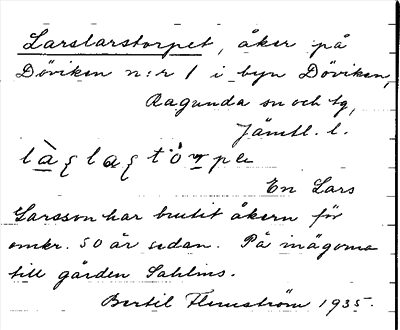 Larslarstorpet, åker på
Döviken n:r 1 i byn Döviken,
Ragunda sn och tg,
Jämtl. l.
En Lars
Larsson har brutit åkern för
omkr. 50 år sedan. På inägorna
till gården Sahlins.
Bertil Flemström 1935.